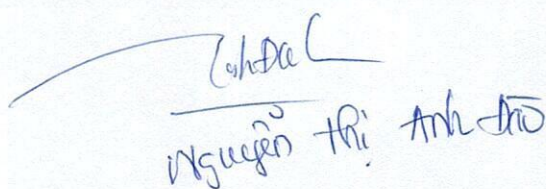 Nguyễn Thị Anh Đào